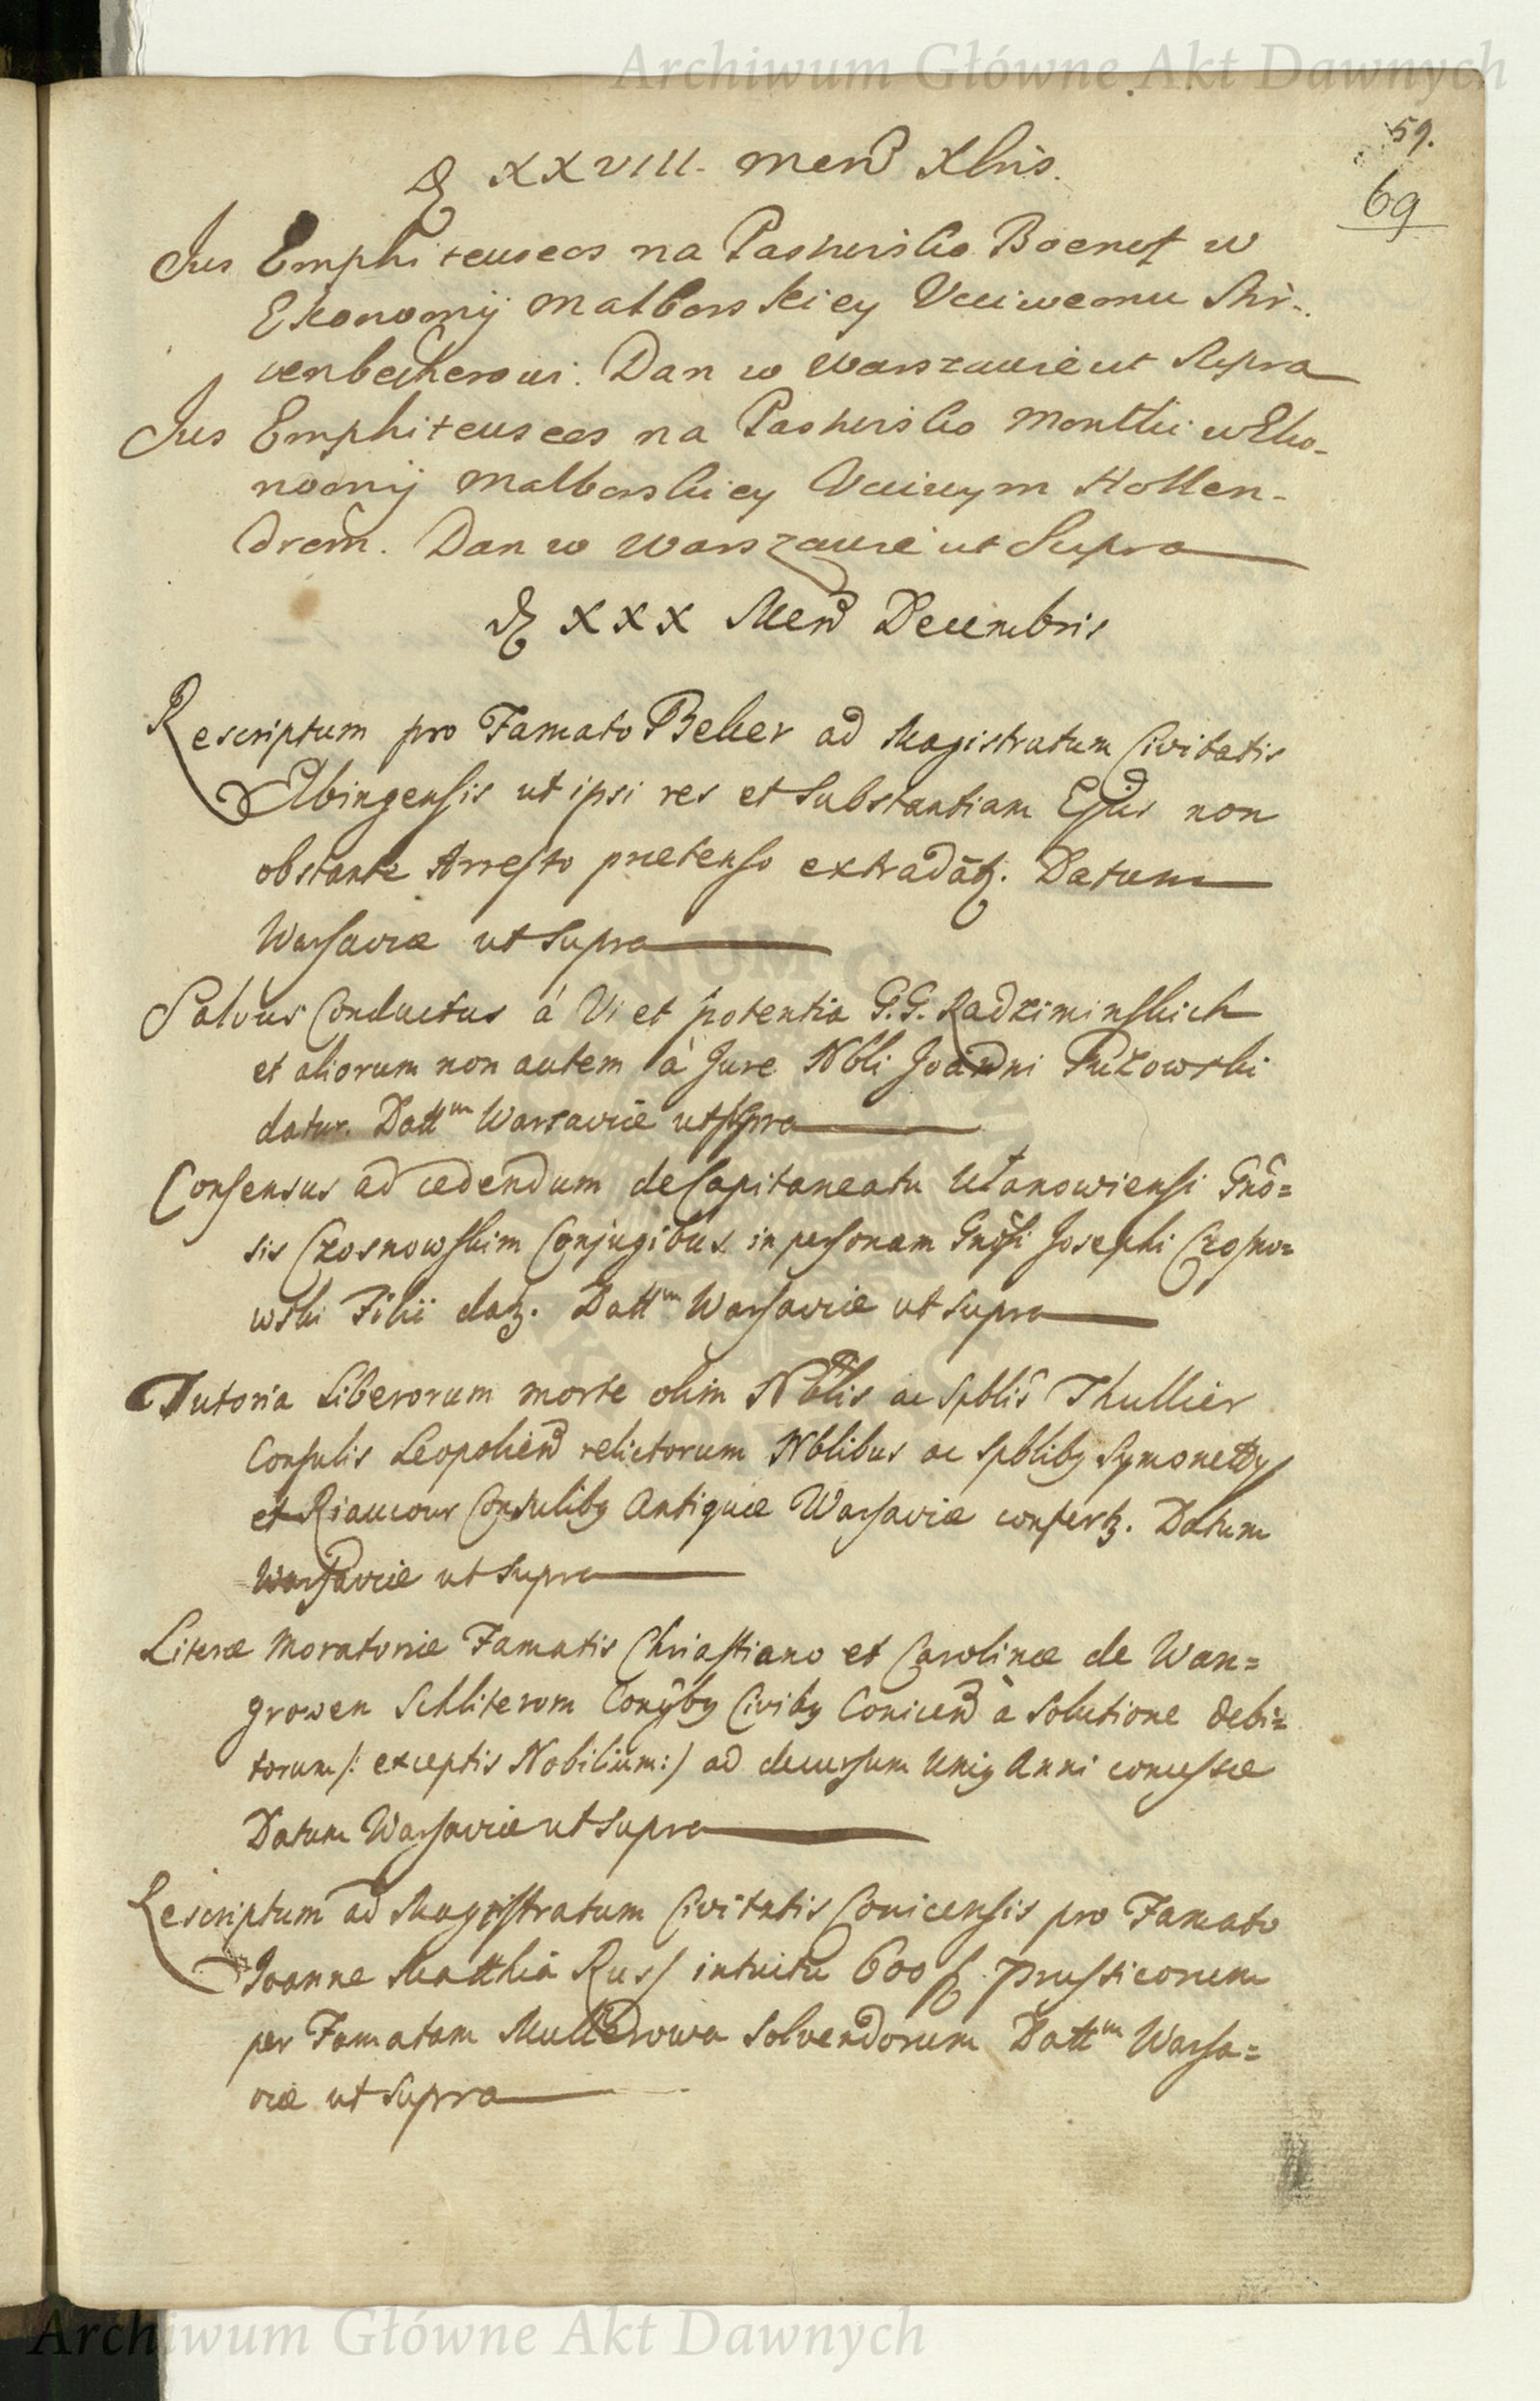 Archiwum Główne Akt Dawnych
59.
69
D XXVIII. Menš Xbris.
Jus Emphiteuseos na Pastwisko Boenet w
Ekonomij Malborskiey Vcciwemu Stri-
cenbecherowi. Dan w Warszawie ut Supra
Jus Emphiteuseos na Pastwisko Montki w Eko-
nomij Malborskiey Vcciwym Hollen-
drom. Dan w Warszawie ut Supra
D XXX Menš Decembris
Rescriptum pro Famato Beker ad Magistratum Civitatis
Elbingensis ut ipsi res et Substantiam Ejus non
obstante Arresto prætenso extradātz. Datum
Warsaviæ ut Supra
Salvus Conductus á Vi et potentia G.G. Radziminskich
et aliorum non autem à Jure Nbli Joanni Puzowski
datur. Dattm Warsaviæ ut supra
Consensus ad cedendum de Capitaneatu Utanowiensi Gnō=
sis Czosnowskim Conjugibus in personam Gnōsi Josephi Czosno=
wski Filii datz. Dattm Warsaviæ ut Supra
Tutoria Liberorum morte olim Nbilis ac Spblis Thullier
Consulis Leopolienš relictorum Nblibus ac Spblibz Symonetty
et Riaucour Consulibz Antiquæ Warsaviæ confertz. Datum
Warsaviæ ut Supra
Literæ Moratoriæ Famatis Christiano et Carolinæ de Wan=
growen Schliterom Conjbz Civibz Conicenš à Solutione Debi=
torum /: exceptis Nobilium :/ ad decursum Uniq Anni concessæ
Datum Warsaviæ ut Supra
Rescriptum ad Magistratum Civitatis Conicensis pro Famato
Joanne Matthia Russ intuitu 600 f. Prussicorum
per Famatam Mullerowa Solvendorum Dattm Warsa=
viæ ut Supra
Archiwum Główne Akt Dawnych